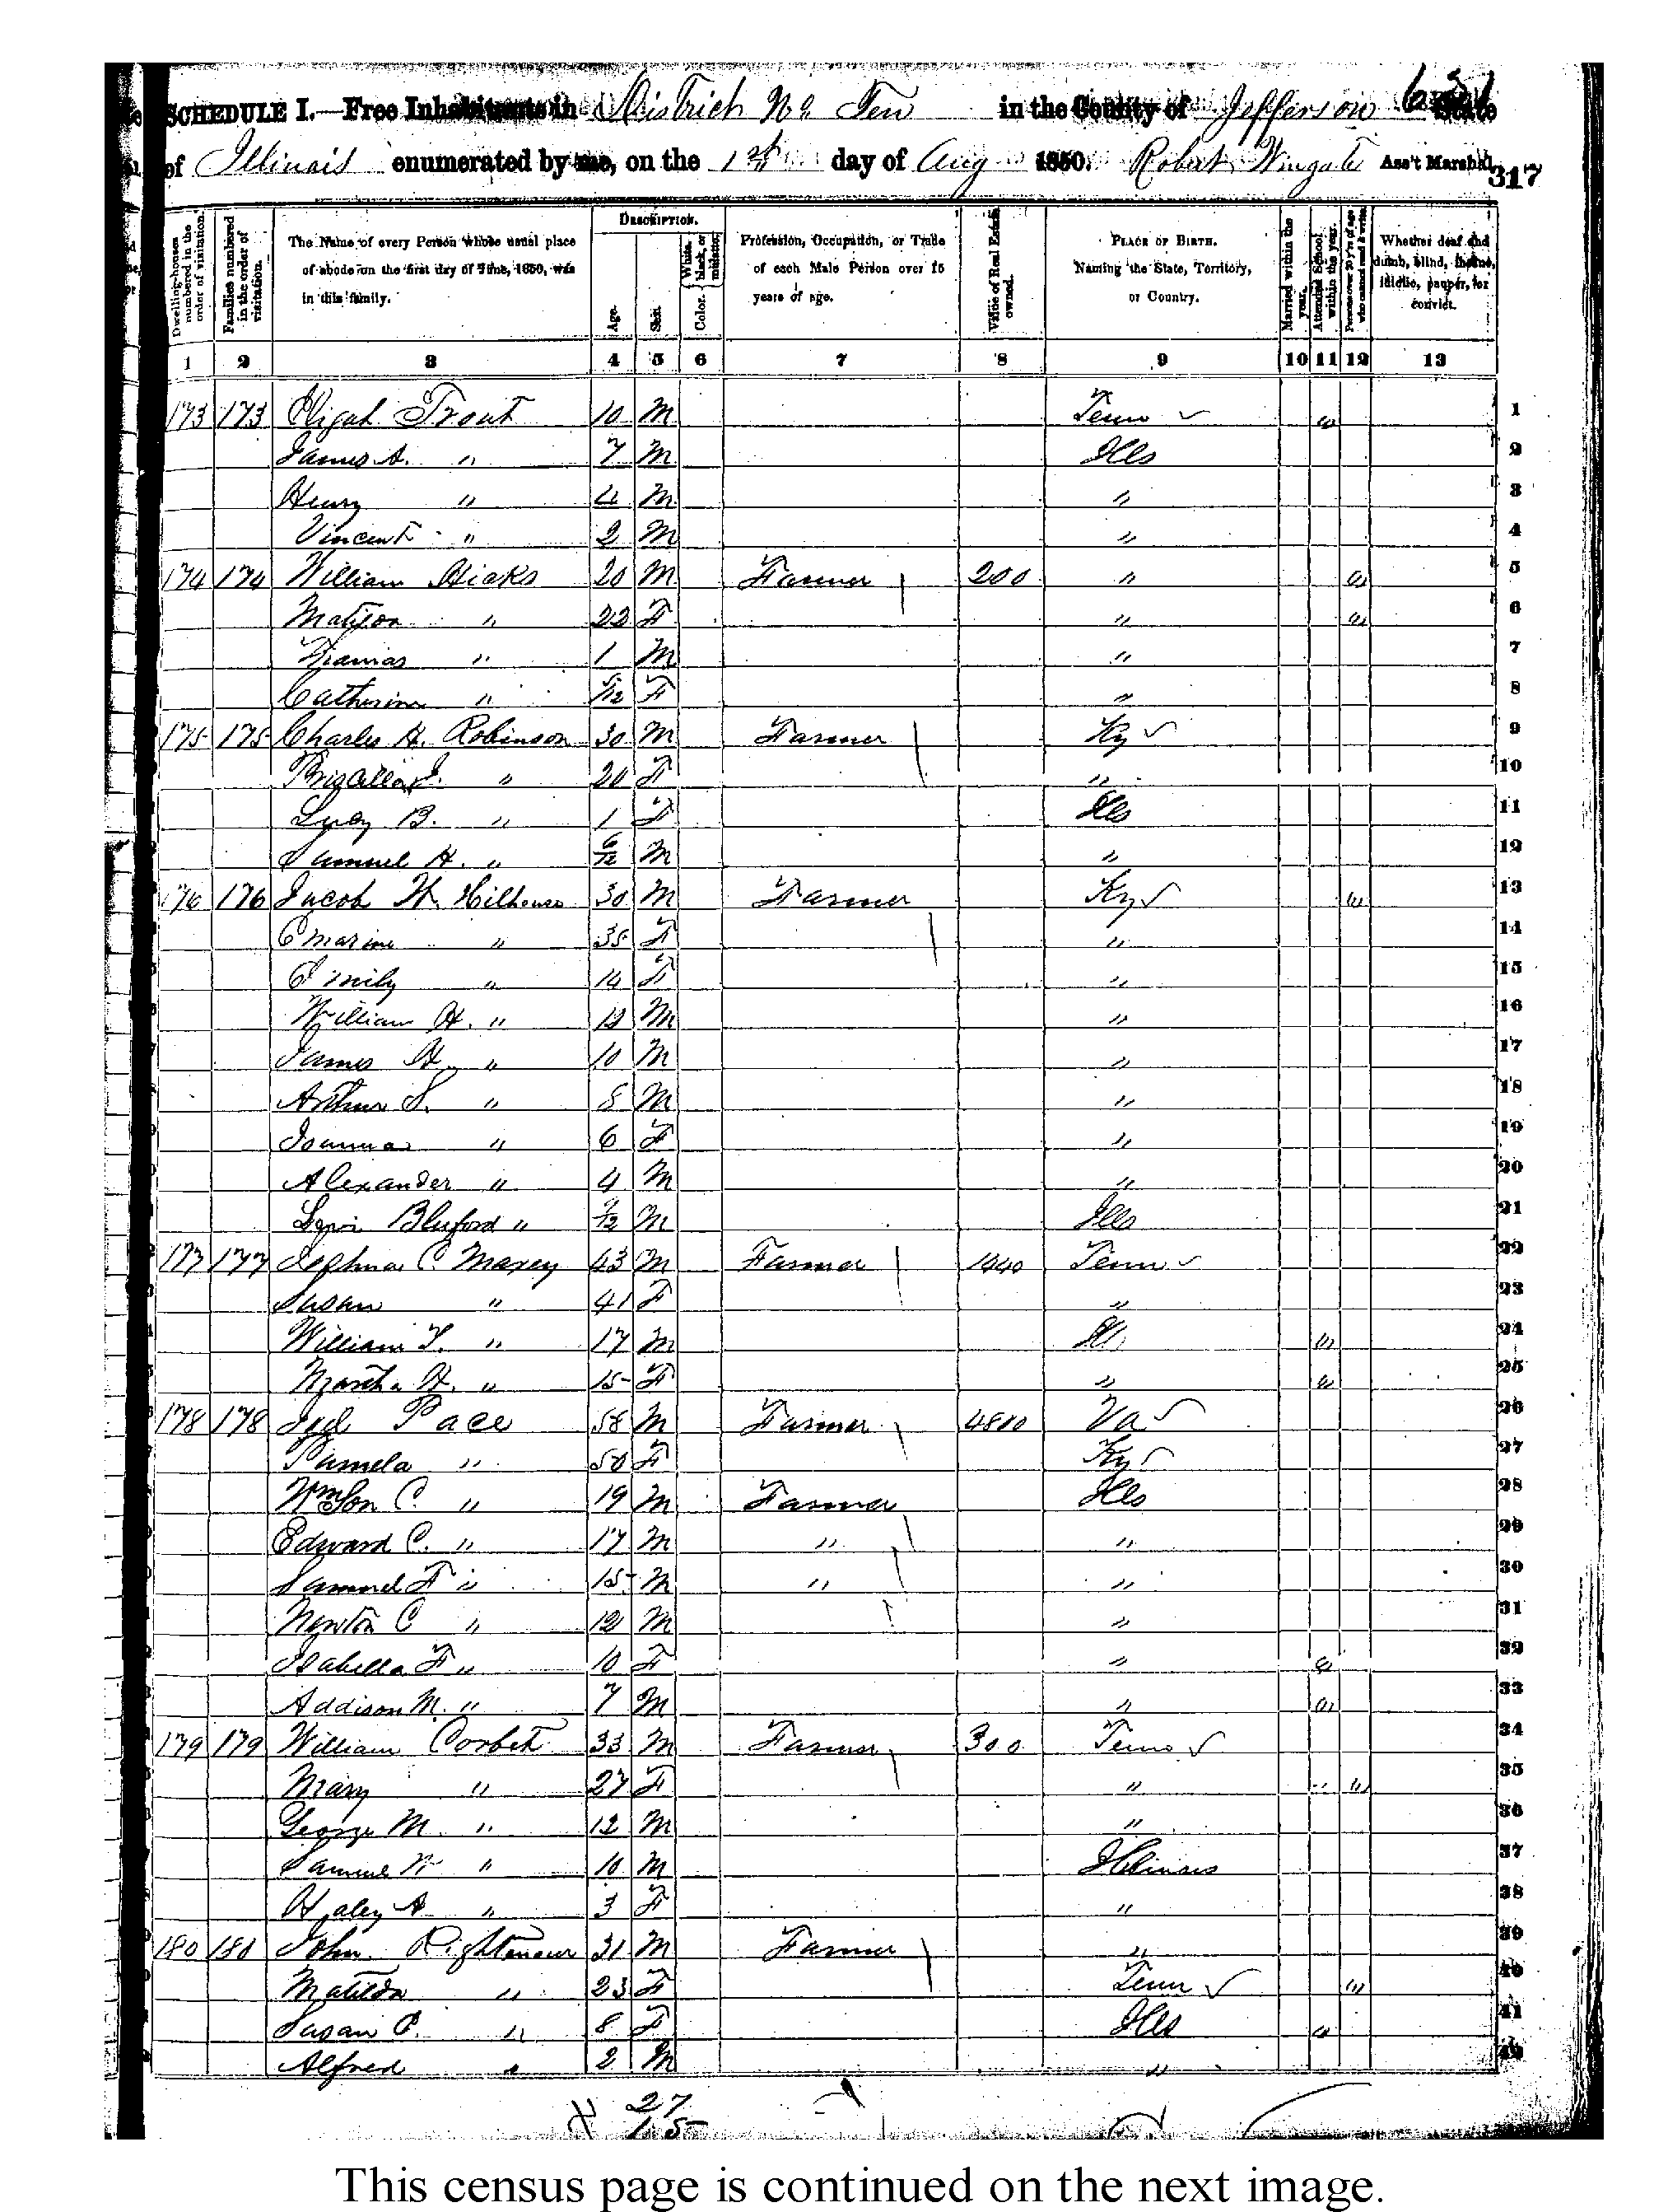 SCHEDULE I.—Free Inhabitants in District No. Ten in the County of Jefferson State
of Illinois enumerated by me, on the 1st day of Aug 1850. Robert Wingate Ass't Marshal.
317
Dwelling-houses numbered in the order of visitation.
Families numbered in the order of visitation.
The Name of every Person whose usual place of abode on the first day of June, 1850, was in this family.
DESCRIPTION.
Age.
Sex.
Color. White, black, or mulatto.
Profession, Occupation, or Trade of each Male Person over 15 years of age.
Value of Real Estate owned.
PLACE OF BIRTH. Naming the State, Territory, or Country.
Married within the year.
Attended School within the year.
Persons over 20 y'rs of age who cannot read & write.
Whether deaf and dumb, blind, insane, idiotic, pauper, or convict.
1 2 3 4 5 6 7 8 9 10 11 12 13
173 173 Elijah Trout 10 M Tenn 1
James A. " 7 M Ills 2
Henry " 4 M " 3
Vincent " 2 M " 4
174 174 William Hicks 20 M Farmer 200 " 5
" 22 F " 6
" 1 M " 7
Catherine " /12 F " 8
175 175 Charles H. Robinson 30 M Farmer Ky 9
" 20 F " 10
Lucy B. " 1 F Ills 11
Samuel H. " 6/12 M " 12
176 176 Jacob W. Hilhouse 30 M Farmer Ky 13
" 35 F " 14
Emily " 14 F " 15
William H. " M " 16
James H. " 10 M " 17
Arthur S. " 8 M " 18
Joanna " 6 F " 19
Alexander " 4 M " 20
Bluford " /12 M Ills 21
177 177 C Maxey 43 M Farmer Tenn 22
Susan " 41 F " 23
William T. " 17 M Ill 24
Martha H. " 15 F " 25
178 178 Joel Pace 58 M Farmer 4800 Va 26
Pamela " 50 F Ky 27
C. " 19 M Farmer Ills 28
Edward C. " 17 M " " 29
Samuel F " 15 M " " 30
Newton C " 12 M " 31
Isabella F " 10 F " 32
Addison M. " 7 M " 33
179 179 William Corbet 33 M Farmer 300 Tenn 34
Mary " 27 F " 35
George M " 12 M " 36
Samuel W " 10 M Illinois 37
Haley A " 3 F " 38
180 180 John Rightenour 31 M Farmer " 39
Matilda " 23 F Tenn 40
Susan " 8 F Ills 41
Alfred " 2 M " 42
27
15
This census page is continued on the next image.